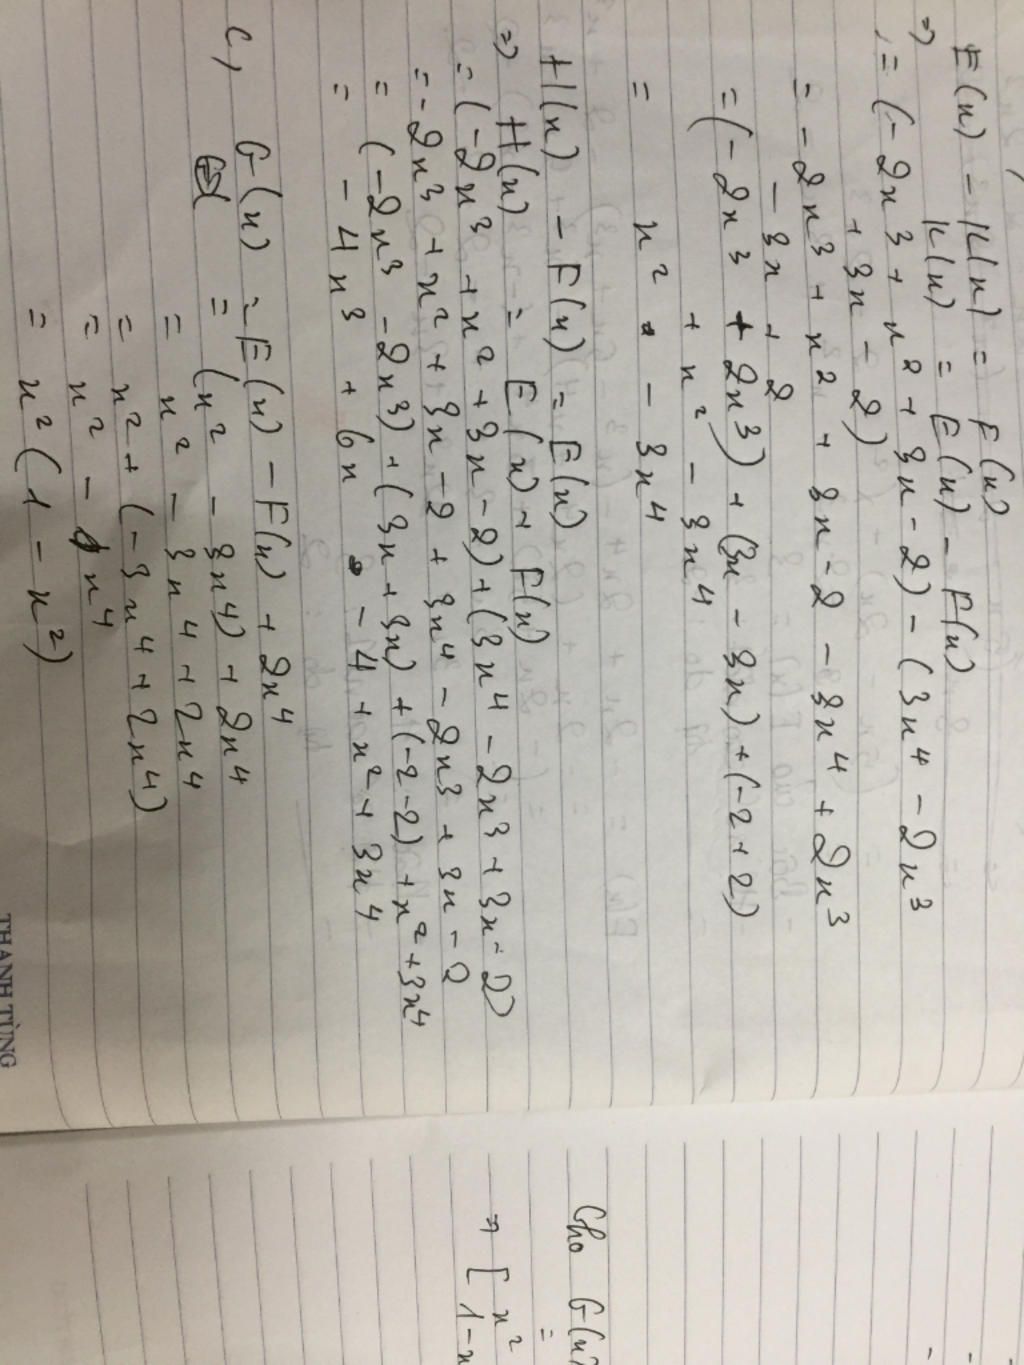 E(x) - K(x) = F(x)
=> K(x) = E(x) - F(x)
= (-2x³ + x² + 3x - 2) - (3x⁴ - 2x³
+ 3x - 2)
= -2x³ + x² + 3x - 2 - 3x⁴ + 2x³
- 3x + 2
= (-2x³ + 2x³) + (3x - 3x) + (-2 + 2)
+ x² - 3x⁴
= x² - 3x⁴
H(x) - F(x) = E(x)
=> H(x) = E(x) + F(x)
= (-2x³ + x² + 3x - 2) + (3x⁴ - 2x³ + 3x - 2)
= -2x³ + x² + 3x - 2 + 3x⁴ - 2x³ + 3x - 2
= (-2x³ - 2x³) + (3x + 3x) + (-2 - 2) + x² + 3x⁴
= -4x³ + 6x - 4 + x² + 3x⁴
c, G(x) = E(x) - F(x) + 2x⁴
= (x² - 3x⁴) + 2x⁴
= x² - 3x⁴ + 2x⁴
= x² + (-3x⁴ + 2x⁴)
= x² - x⁴
= x² (1 - x²)
THANH TÙNG
Cho G(x)
=
=> [ x²
1 - x